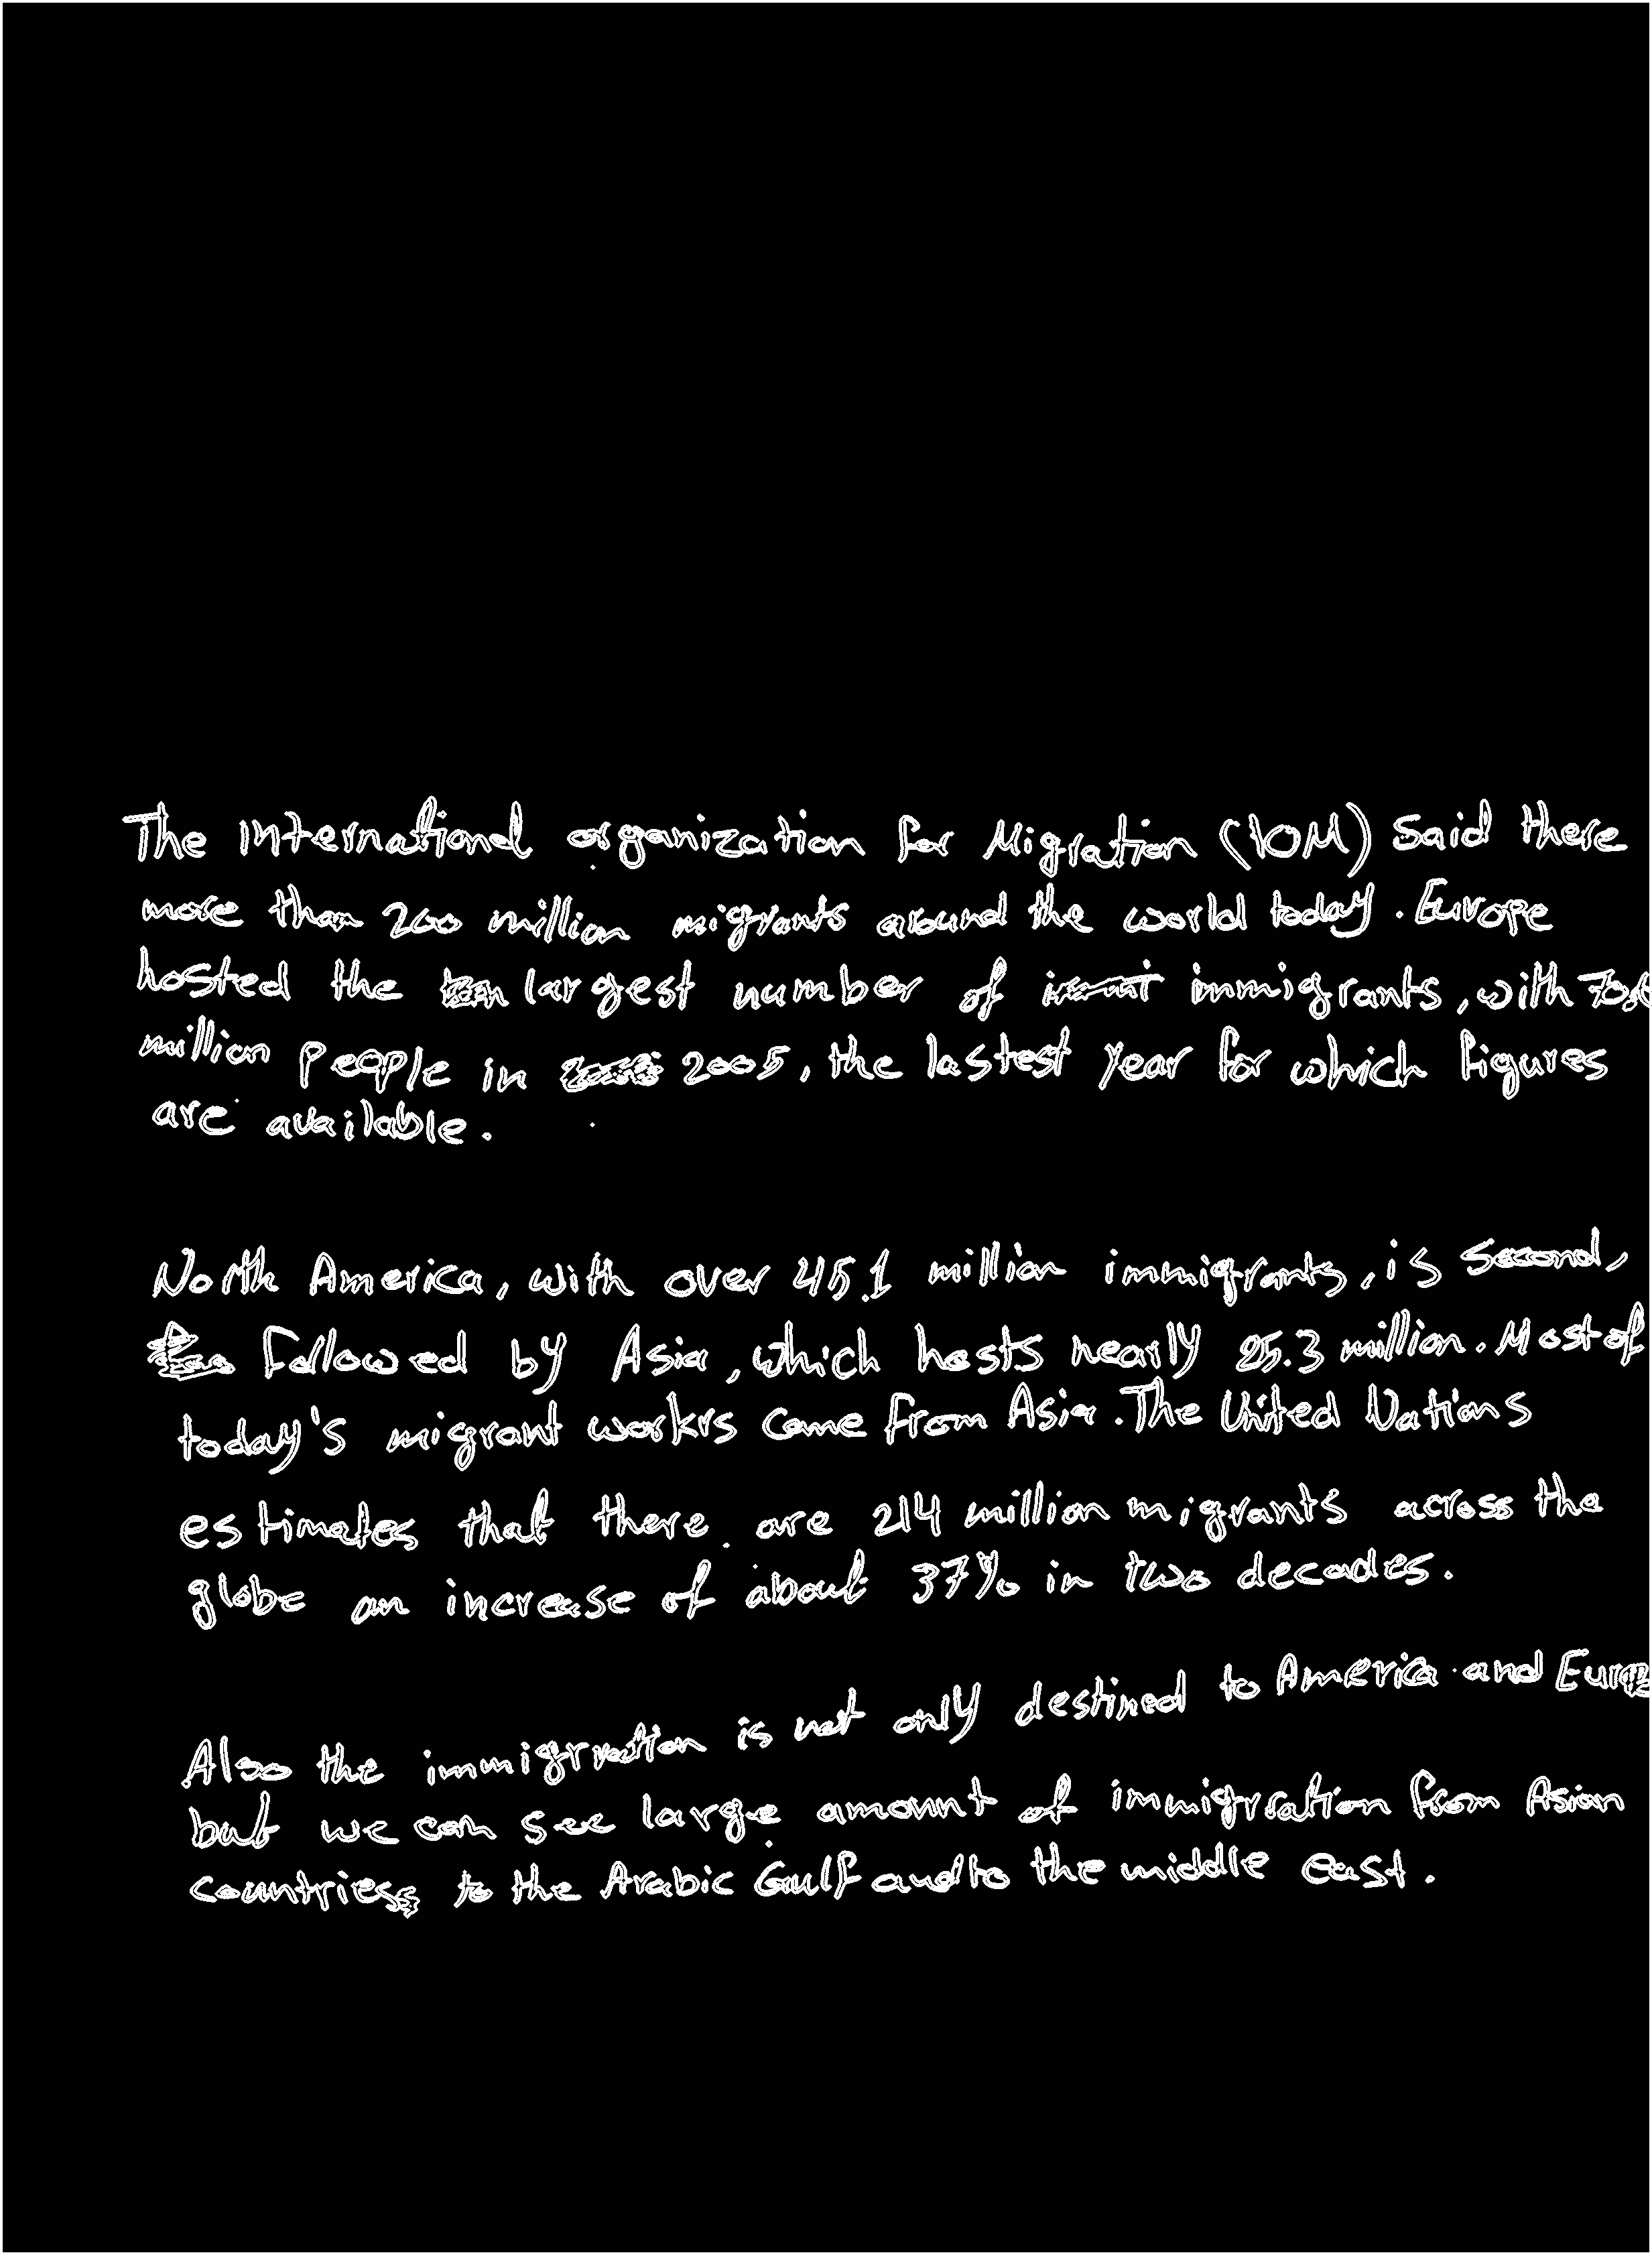 The International organization for Migration (IOM) said there
more than 200 million migrants around the world today. Europe
hosted the largest number of immigrants, with
million people in 2005, the lastest year for which figures
are available.
North America, with over 45.1 million immigrants, is second,
followed by Asia, which hosts nearly 25.3 million. Most of
today's migrant workrs come from Asia. The United Nations
estimates that there are 214 million migrants across the
globe an increase of about 37% in two decades.
Also the immigration is not only destined to America and
but we can see large amount of immigration from Asian
countries to the Arabic Gulf and to the middle east.